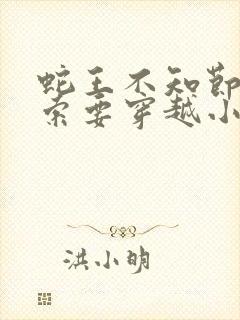 蛇王不知节
索要穿越小
洪小明